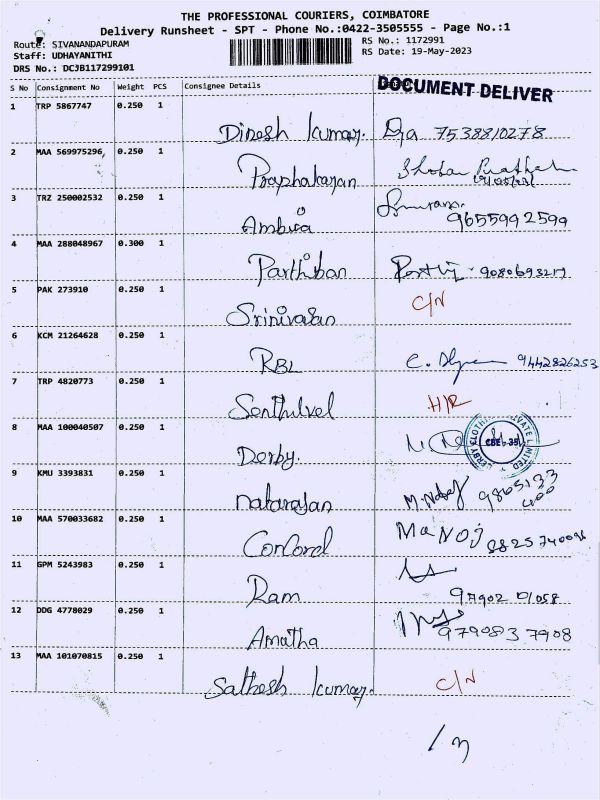 THE PROFESSIONAL COURIERS, COIMBATORE
Delivery Runsheet - SPT - Phone No.:0422-3505555 - Page No.:1
Route: SIVANANDAPURAM
Staff: UDHAYANITHI
DRS No.: DCJB117299101
RS No.: 1172991
RS Date: 19-May-2023
S No Consignment No Weight PCS Consignee Details
DOCUMENT DELIVER
1 TRP 5867747 0.250 1
Dinesh kumar. 7538810278
2 MAA 569975296, 0.250 1
Praphakaran
3 TRZ 250002532 0.250 1
Ambica 9655992599
4 MAA 288048967 0.300 1
Parthiban 9080693217
5 PAK 273910 0.250 1
Srinivasan C/N
6 KCM 21264628 0.250 1
RBL 9442826253
7 TRP 4820773 0.250 1
Senthilvel H/R
8 MAA 100040507 0.250 1
Derby. CBE-35
9 KMU 3393831 0.250 1
natarajan 9865133
400
10 MAA 570033682 0.250 1
Concorel MaNOj
11 GPM 5243983 0.250 1
Ram 97902 01058
12 DDG 4778029 0.250 1
Amatha 9790837908
13 MAA 101070815 0.250 1
Sathesh kumar. C/N